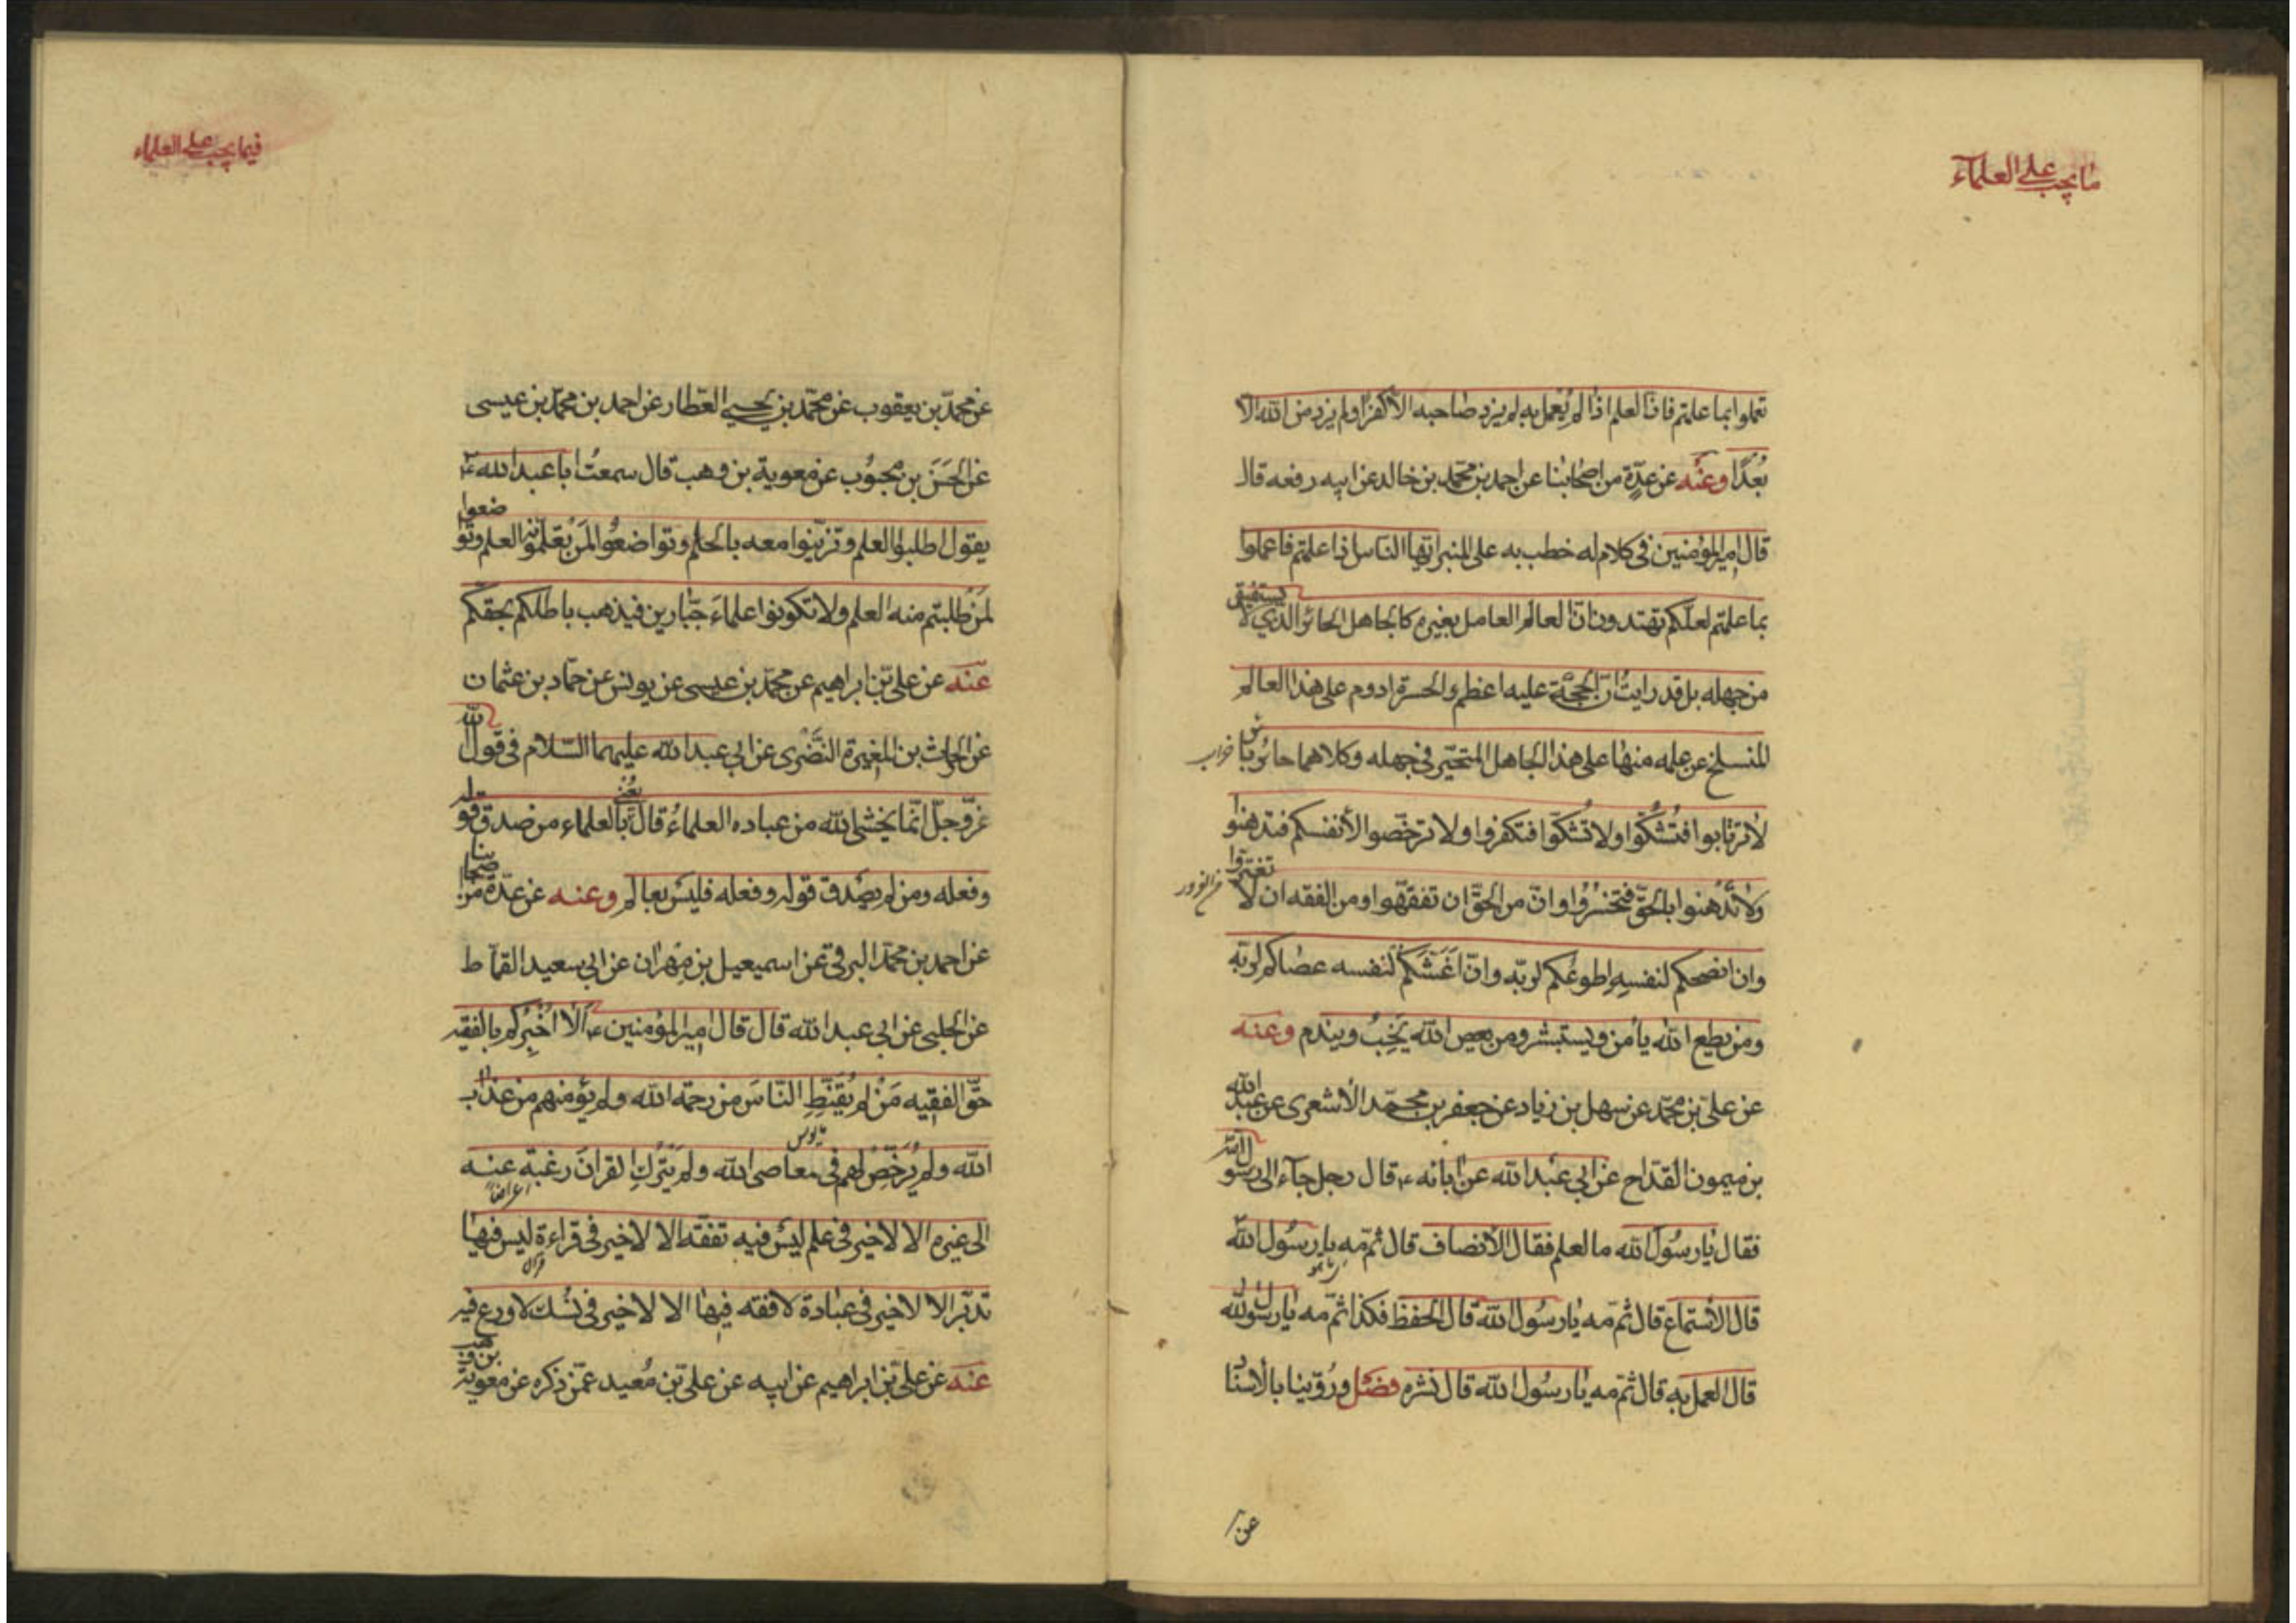 ما يجب على العلمآء
تعملوا بما علمتم فانّ العلم اذا لم يُعمل به لم يزدد صاحبه الا كفرًا ولم يزدد من الله الا
بُعدًا وعنه عن عدّةٍ من اصحابنا عن احمد بن محمّد بن خالد عن ابيه رفعه قال
قال اميرالمؤمنين فى كلام له خطب به على المنبر ايّها الناس اذا علمتم فاعملوا
بما علمتم لعلّكم تهتدون انّ العالم العامل بغيره كالجاهل الحائر الذي لا يستفيق
من جهله بل قد رايتُ انّ الحجّة عليه اعظم والحسرة ادوم على هذا العالم
المنسلخ عن علمه منها على هذا الجاهل المتحيّر فى جهله وكلاهما حائر بائر
خراب
لا ترتابوا فتشكّوا ولا تشكّوا فتكفروا ولا ترخّصوا لأنفسكم فتدهنوا
ولا تُدهنوا بالحقّ فتخسرُوا وانّ من الحقّ ان تفقّهوا ومن الفقه ان لا تغترّوا
وان انصحكم لنفسهِ اطوعُكم لربّه وانّ اغَشّكم لنفسه عصاكم لربّه
ومن يطع الله يأمن ويستبشر ومن يعص الله يَخِبُ ويندم وعنه
عن علىّ بن محمّد عن سهل بن زياد عن جعفر بن محمّد الأشعرى عن عبيد الله
بن ميمون القدّاح عن ابي عبد الله عن آبائه ع قال رجل جآء الى رسول الله
فقال يا رسُول الله ما العلم فقال الأنصات قال ثمّ مه يا رسُول الله
قال الأستماع قال ثمّ مه يا رسُول الله قال الحفظ فكذا ثمّ مه يا رسول الله
قال العمل به قال ثمّ مه يا رسُول الله قال نشره فصل ورُوّينا بالأسناد
عن
فيما يجب على العلماء
عن محمّد بن يعقوب عن محمّد بن يحيى العّطار عن احمد بن محمّد بن عيسى
عن الحَسَن بن مَحبُوب عن معوية بن وهب قال سمعتُ ابا عبد الله ع
يقول اطلبوا العلم وتزيّنوا معه بالحلم وتواضعُوا لمَن تُعَلّمونه العلم وتواضعوا
لمَن طلبتم منه العلم ولا تكونوا علماءَ جبّارين فيذهب باطلكم بحقكم
عنه عن علىّ بن ابراهيم عن محمّد بن عيسى عن يونس عن حمّاد بن عثمان
عن الحارث بن المغيرة النَّضْرى عن ابي عبد الله عليهما السّلام فى قول الله
عزّ وجلّ انّما يخشى الله من عباده العلماءُ قال يعنى بالعلماء من صدق قوله
وفعله ومن لم يصدق قوله وفعله فليسَ بعالم وعنه عن عدّة من اصحابنا
عن احمد بن محمّد البرقى عن اسمعيل بن مِهران عن ابى سعيد القمّاط
عن الحلبى عن ابي عبد الله قال قال اميرالمؤمنين ع ألا اُخْبِرُكم بالفقيه
حقّ الفقيه مَن لم يُقَنّطِ النّاسَ من رحمة الله ولم يؤمنهم من عذاب
مايوس
الله ولم يُرَخّصْ لهم فى معاصى الله ولم يَتْرُكِ القرانَ رغبة عنه
اعراضا
الى غيره الا لا خير فى علم ليسَ فيه تفقّه الا لا خير فى قراءة ليس فيها
قران
تدبّر الا لا خير فى عبادة لا فقه فيها الا لا خير فى نُسُك لا ورع فيه
عنه عن علىّ بن ابراهيم عن ابيه عن علىّ بن مُعبد عمّن ذكره عن معوية بن وهب